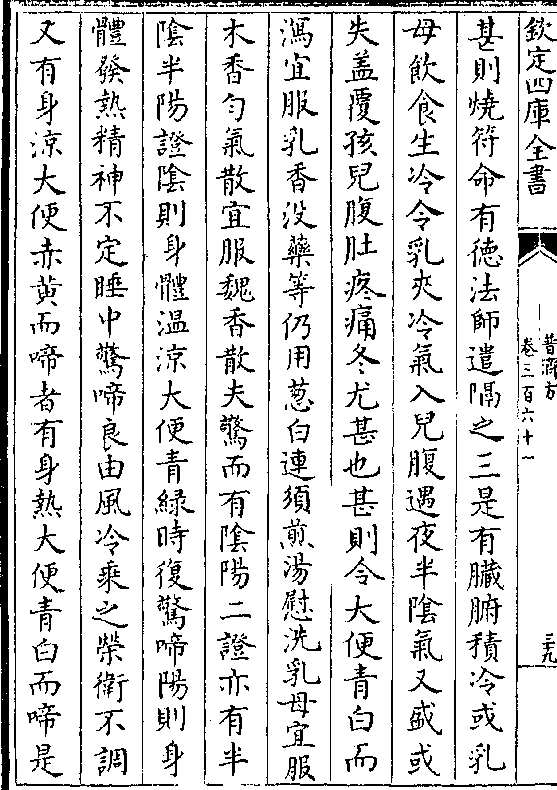 欽定四庫全書
普濟方
卷三百六十一
三九
甚則燒符命有德法師遣隔之三是有臟腑積冷或乳
母飲食生冷令乳夾冷氣入兒腹遇夜半陰氣又盛或
失蓋覆孩兒腹肚疼痛冬尤甚也甚則令大便青白而
瀉宜服乳香没藥等仍用葱白連須煎湯慰洗乳母宜服
木香勻氣散宜服魏香散夫驚而有陰陽二證亦有半
陰半陽證陰則身體溫涼大便青綠時復驚啼陽則身
體發熱精神不定睡中驚啼良由風冷乘之榮衛不調
又有身涼大便赤黃而啼者有身熱大便青白而啼是